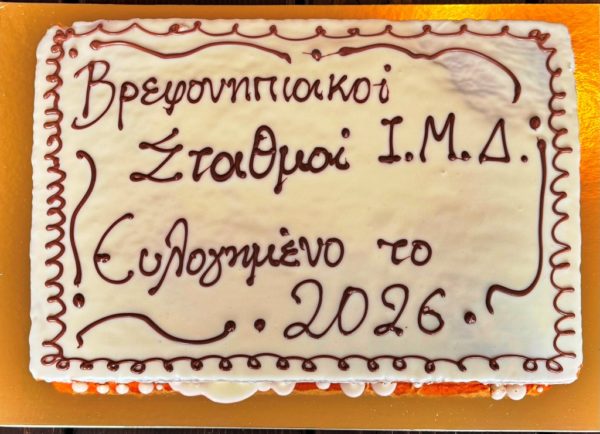 Βρεφονηπιακοί
Σταθμοί Ι.Μ.Δ.
Ευλογημένο το
.2026.